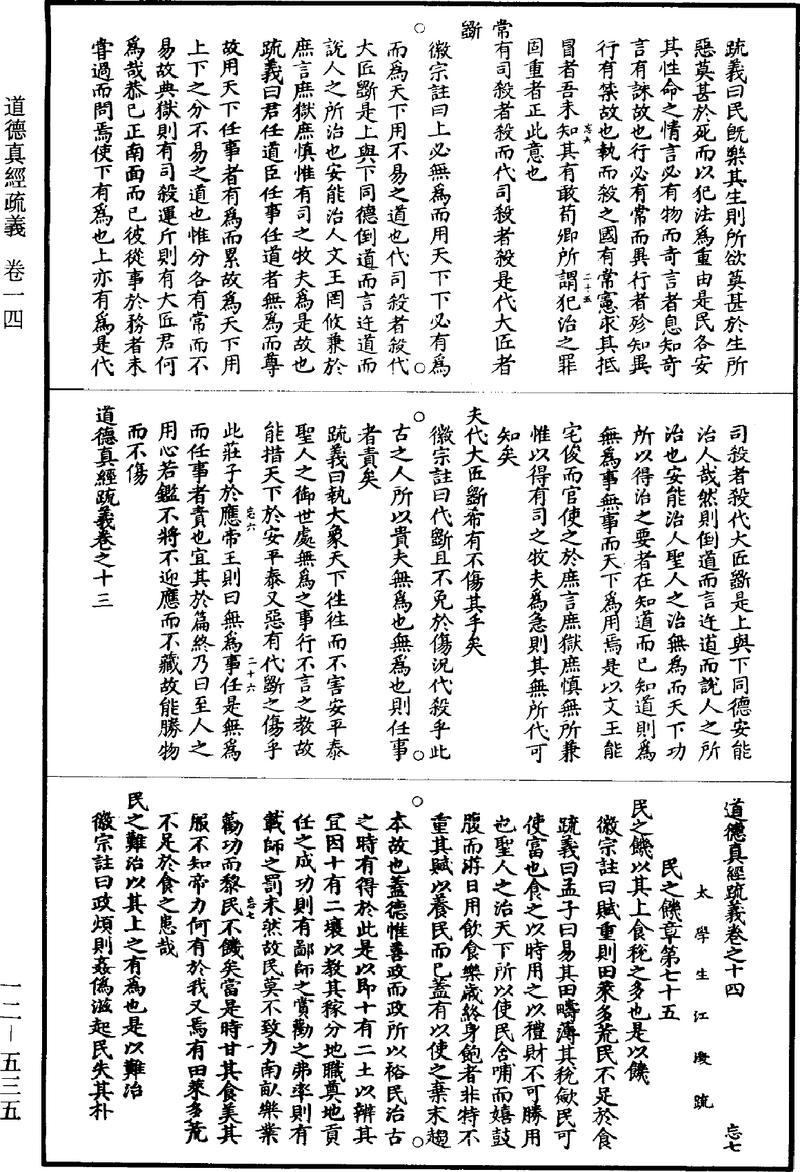 道德真經疏義　卷一四
一二－五三五
疏義曰民旣樂其生則所欲莫甚於生所
惡莫甚於死而以犯法爲重由是民各安
其性命之情言必有物而奇言者息知奇
言有誅故也行必有常而異行者殄知異
行有禁故也執而殺之國有常憲求其抵
冒者吾未知其有敢荀卿所謂犯治之罪
固重者正此意也
忘六
二十五
常有司殺者殺而代司殺者殺是代大匠者
斲
徽宗註曰上必無爲而用天下下必有爲
而爲天下用不易之道也代司殺者殺代
大匠斲是上與下同德倒道而言迕道而
說人之所治也安能治人文王罔攸兼於
庶言庶獄庶慎惟有司之牧夫爲是故也
疏義曰君任道臣任事任道者無爲而尊
故用天下任事者有爲而累故爲天下用
上下之分不易之道也惟分各有常而不
易故典獄則有司殺運斤則有大匠君何
爲哉恭己正南面而已彼從事於務者未
嘗過而問焉使下有爲也上亦有爲是代
司殺者殺代大匠斲是上與下同德安能
治人哉然則倒道而言迕道而說人之所
治也安能治人聖人之治無爲而天下功
所以得治之要者在知道而已知道則爲
無爲事無事而天下爲用焉是以文王能
宅俊而官使之於庶言庶獄庶慎無所兼
惟以得有司之牧夫爲急則其無所代可
知矣
夫代大匠斲希有不傷其手矣
徽宗註曰代斲且不免於傷況代殺乎此
古之人所以貴夫無爲也無爲也則任事
者責矣
疏義曰執大象天下徃徃而不害安平泰
聖人之御世處無爲之事行不言之教故
能措天下於安平泰又惡有代斲之傷乎
忘六
二十六
此莊子於應帝王則曰無爲事任是無爲
而任事者責也宜其於篇終乃曰至人之
用心若鑑不將不迎應而不藏故能勝物
而不傷
道德真經疏義卷之十三
道德真經疏義卷之十四
忘七
太學生江澂疏
民之饑章第七十五
民之饑以其上食稅之多也是以饑
徽宗註曰賦重則田萊多荒民不足於食
疏義曰孟子曰易其田疇薄其稅斂民可
使富也食之以時用之以禮財不可勝用
也聖人之治天下所以使民含哺而嬉鼓
腹而游日用飲食樂歲終身飽者非特不
重其賦以養民而已蓋有以使之棄末趨
本故也蓋德惟善政而政所以裕民治古
之時有得於此是以即十有二土以辨其
宜因十有二壤以教其稼分地職奠地貢
任之成功則有鄙師之賞勸之弗率則有
載師之罰未然故民莫不致力南畝樂業
忘七
一
勸功而黎民不饑矣當是時甘其食美其
服不知帝力何有於我又焉有田萊多荒
不足於食之患哉
民之難治以其上之有爲也是以難治
徽宗註曰政煩則姦偽滋起民失其朴